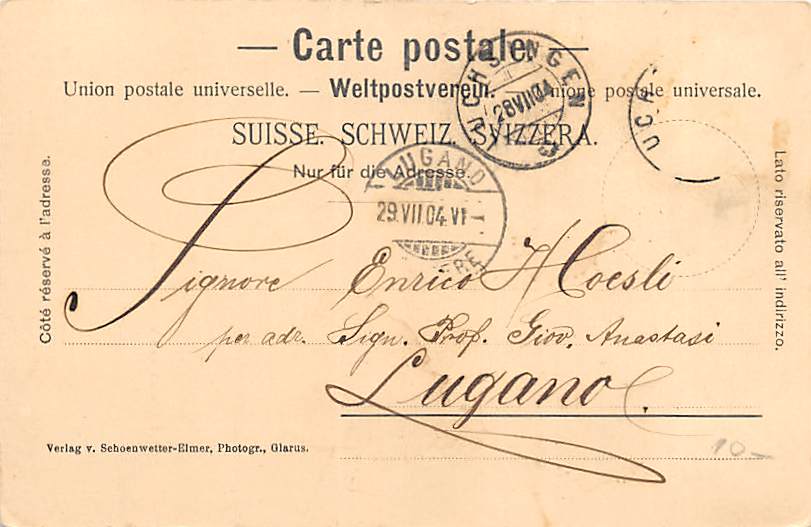 — Carte postale —
Union postale universelle. — Weltpostverein. — Unione postale universale.
SUISSE. SCHWEIZ. SVIZZERA.
Nur für die Adresse.
LUCHSINGEN
28 VII 04
LUGANO
29.VII.04.VI
Côté réservé à l'adresse.
Lato riservato all' indirizzo.
Signore Enrico Hoesli
per adr. Sign. Prof. Giov. Anastasi
Lugano.
Verlag v. Schoenwetter-Elmer, Photogr., Glarus.
10-